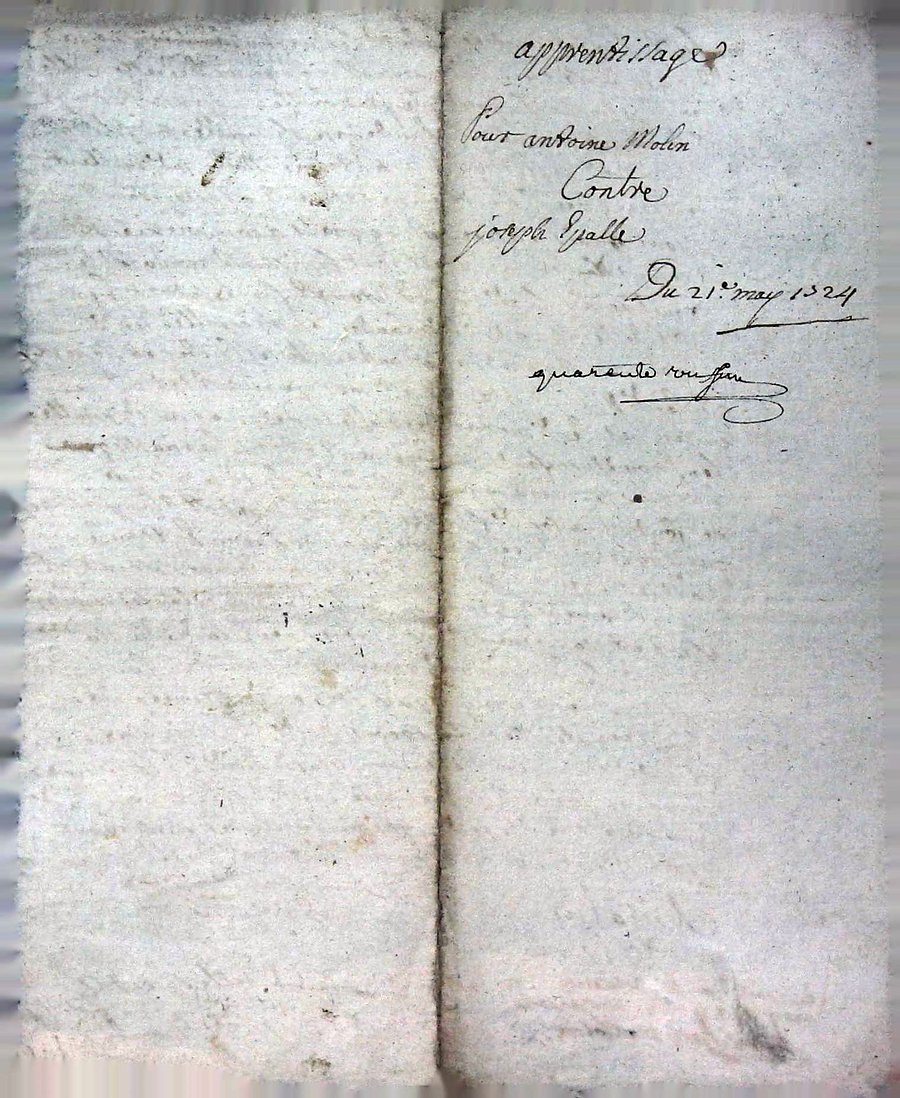 apprentissage
Pour antoine Molin
Contre
joseph Epalle
Du 21e. may 1324
quarente